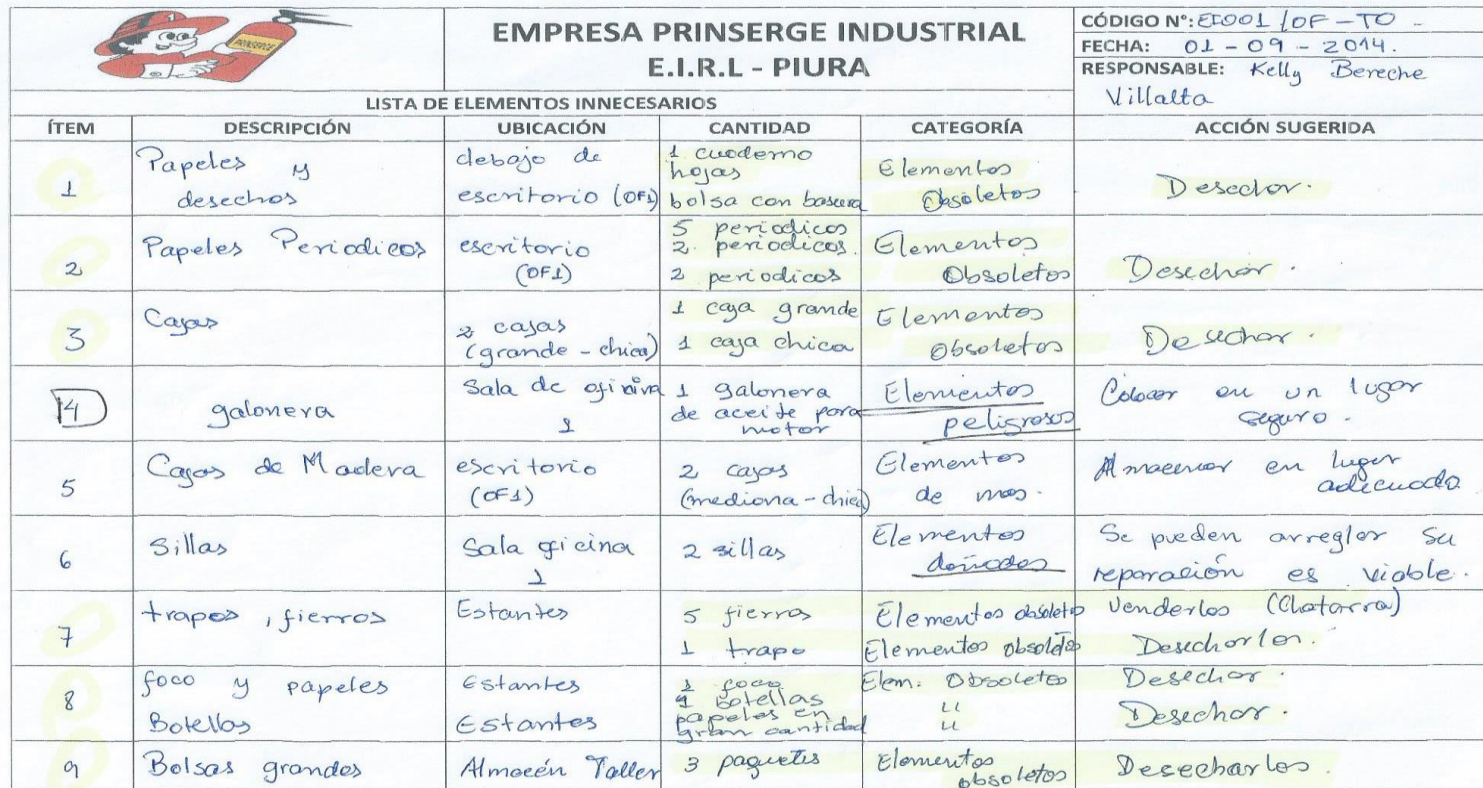 PRINSERGE
EMPRESA PRINSERGE INDUSTRIAL
E.I.R.L - PIURA
CÓDIGO N°: EI001 / OF - TO -
FECHA: 01 - 09 - 2014.
RESPONSABLE: Kelly Bereche
Villalta
LISTA DE ELEMENTOS INNECESARIOS
ÍTEM DESCRIPCIÓN UBICACIÓN CANTIDAD CATEGORÍA ACCIÓN SUGERIDA
1
Papeles y
desechos
debajo de
escritorio (OF1)
1 cuaderno
hojas
bolsa con basura
Elementos
Obsoletos
Desechar.
2
Papeles Periodicos
escritorio
(OF1)
5 periodicos
2 periodicos.
2 periodicos
Elementos
Obsoletos
Desechar.
3
Cajas
2 cajas
(grande - chica)
1 caja grande
1 caja chica
Elementos
Obsoletos
Desechar.
4
galonera
Sala de oficina
1
1 galonera
de aceite para
motor
Elementos
peligrosos
Colocar en un lugar
seguro.
5
Cajas de Madera
escritorio
(OF1)
2 cajas
(mediana - chica)
Elementos
de mas.
Almacenar en lugar
adecuado.
6
Sillas
Sala oficina
1
2 sillas
Elementos
dañados
Se pueden arreglar su
reparación es viable.
7
trapos, fierros
Estantes
5 fierros
1 trapo
Elementos obsoleto
Elementos obsoletos
Venderlos (Chatarra)
Desecharlos.
8
foco y papeles
Botellas
Estantes
Estantes
1 foco
4 botellas
papeles en
gran cantidad
Elem. Obsoletos
"
"
Desechar.
Desechar.
9
Bolsas grandes
Almacén Taller
3 paquetes
Elementos
obsoletos
Desecharlos.